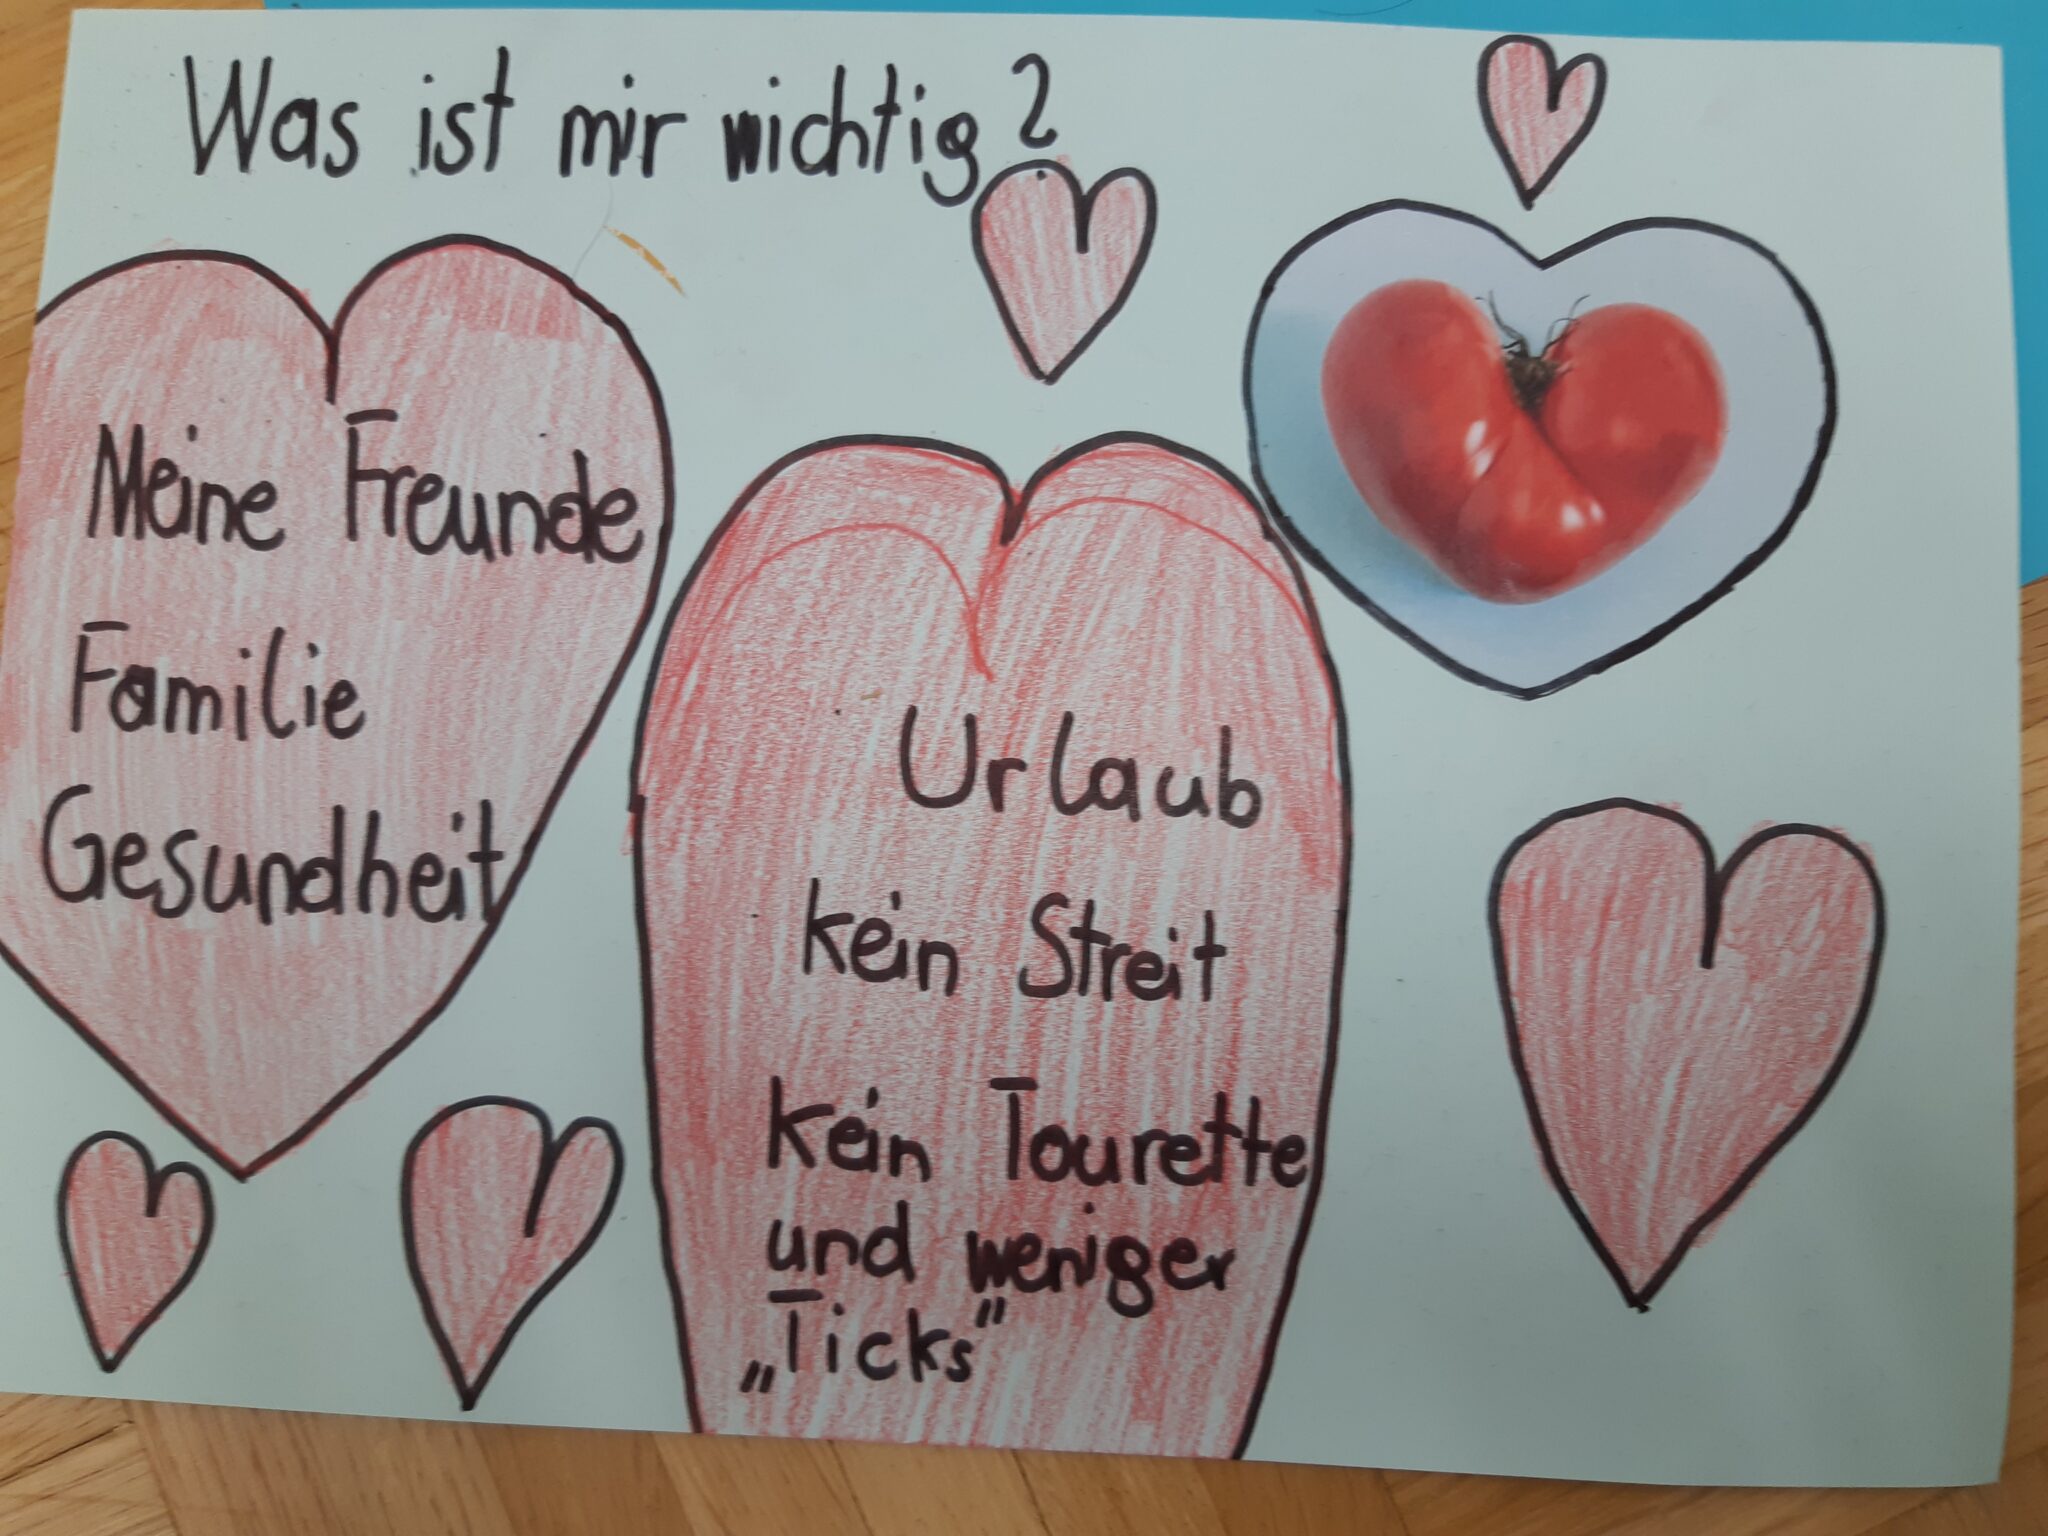 Was ist mir wichtig?
Meine Freunde
Familie
Gesundheit
Urlaub
kein Streit
kein Tourette
und weniger
„Ticks"